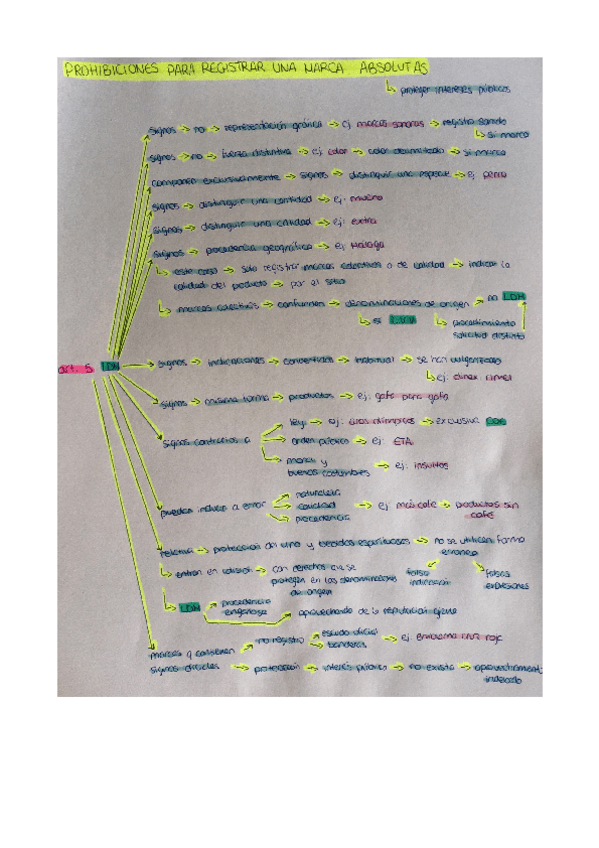 PROHIBICIONES PARA REGISTRAR UNA MARCA ABSOLUTAS
↳ proteger intereses públicos
signos → no → representación gráfica → ej marcas sonoras → registro sonido
↳ si marca
signos → no → fuerza distintiva → ej. color → color delimitado → si marca
componen exclusivamente → signos → distinguir una especie → ej perro
signos → distinguir una cantidad → ej: mucho
signos → distinguir una calidad → ej: extra
signos → procedencia geográfica → ej Málaga
↳ este caso → solo registrar marcas colectivas o de calidad → indicar la
calidad del producto → por el sitio
↳ marcas colectivas → confunden → denominaciones de origen → no LDM
↳ si ↳ procedimiento
solicitud distinto
art. 5 LDM
signos → indicaciones → convertidas → habitual → se han vulgarizado
↳ ej: clinex rimel
signos → misma forma → productos → ej: gafa para gafa
signos contrarios a
ley → ej: aros olímpicos → exclusiva COE
orden público → ej: ETA
moral y
buenas costumbres → ej: insultos
pueden inducir a error
naturaleza
calidad
procedencia
→ ej marcafe → productos sin
café
relativa → protección del vino y bebidas espirituosas → no se utilicen forma
errónea
falsa
indicación
falsas
expresiones
↳ entran en colisión → con derechos que se
protegen en las denominaciones
de origen
↳ LDM
procedencia
engañosa
aprovechando de la reputación ajena
marcas q contienen
signos oficiales
no registro
escudo oficial
banderas
→ ej emblema cruz roja
→ protección → interés público → no exista → aprovechament
indebido